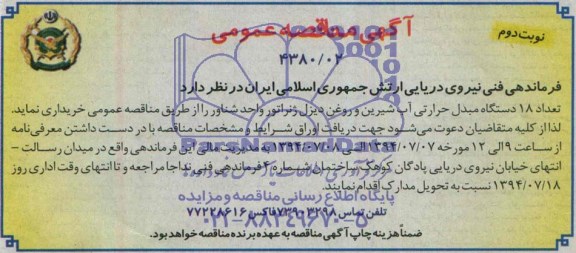 آگهی مناقصه عمومی
نوبت دوم
۴۳۸۰/۰۲
فرماندهی فنی نیروی دریایی ارتش جمهوری اسلامی ایران در نظر دارد
تعداد ۱۸ دستگاه مبدل حرارتی آب شیرین و روغن دیزل ژنراتور واحد شناور را از طریق مناقصه عمومی خریداری نماید.
لذا از کلیه متقاضیان دعوت می‌شود جهت دریافت اوراق شرایط و مشخصات مناقصه با در دست داشتن معرفی‌نامه
از ساعت ۹ الی ۱۲ مورخه ۱۳۹۴/۰۷/۰۷ الی ۱۳۹۴/۰۷/۰۸ به مدیریت مالی این فرماندهی واقع در میدان رسالت -
انتهای خیابان نیروی دریایی پادگان کوهک ساختمان شماره ۴ فرماندهی فنی نداجا مراجعه و تا انتهای وقت اداری روز
۱۳۹۴/۰۷/۱۸ نسبت به تحویل مدارک اقدام نمایند.
پایگاه اطلاع رسانی مناقصه و مزایده
تلفن تماس ۷۲۹۰۳۲۹۸ فاکس ۷۷۲۲۸۶۱۶
۰۲۱-۸۸۳۴۹۶۷۰-۵
ضمناً هزینه چاپ آگهی مناقصه به عهده برنده مناقصه خواهد بود.